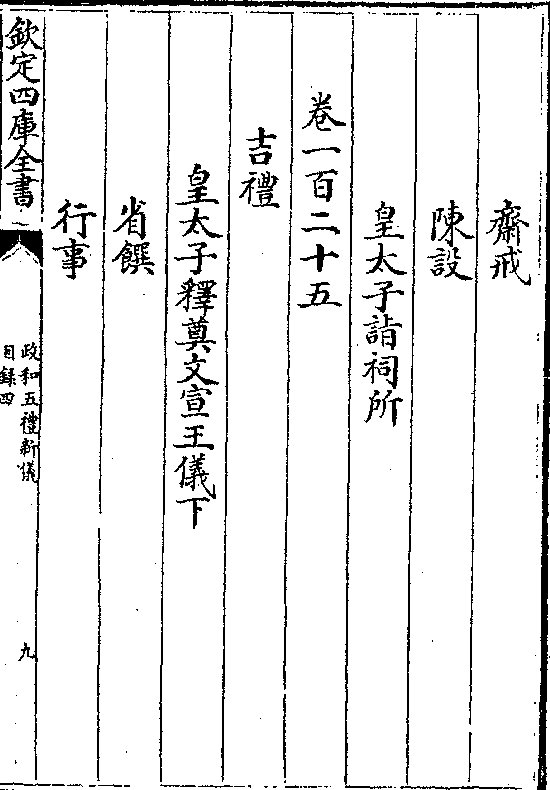 齋戒
陳設
皇太子詣祠所
卷一百二十五
吉禮
皇太子釋奠文宣王儀下
省饌
行事
欽定四庫全書
政和五禮新儀
目録四
九